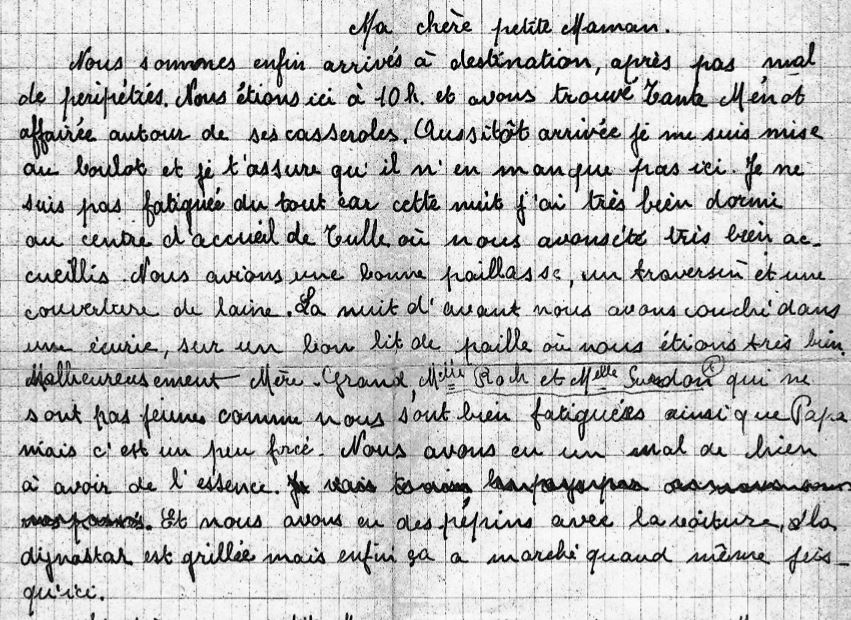 Ma chère petite Maman.
Nous sommes enfin arrivés à destination, après pas mal
de peripétiés. Nous étions ici à 10h. et avons trouvé Tante Ménot
affairée autour de ses casseroles. Aussitôt arrivée je me suis mise
au boulot et je t'assure qu'il n'en manque pas ici. Je ne
suis pas fatiguée du tout car cette nuit j'ai très bien dormi
au centre d'accueil de Tulle où nous avons été très bien ac-
cueillis. Nous avions une bonne paillasse, un traversin et une
couverture de laine. La nuit d'avant nous avons couché dans
une écurie, sur un bon lit de paille où nous étions très bien.
Malheureusement Mère-Grand, Melle Roch et Melle Suedon (x) qui ne
sont pas jeunes comme nous sont bien fatiguées ainsi que Papa
mais c'est un peu forcé. Nous avons eu un mal de chien
à avoir de l'essence.
Et nous avons eu des pépins avec la voiture, la
dynastar est grillée mais enfin ça a marché quand même jus-
qu'ici.